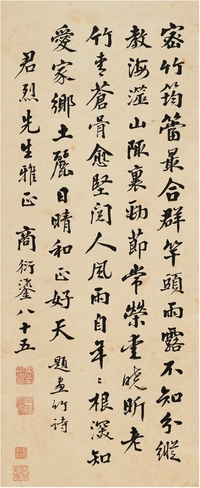 密竹筠簹最合群竿頭雨露不知分縱
教海澨山陬裏勁節常榮晚昕老
竹青蒼骨愈堅閱人風雨自年〻根深知
愛家鄉土麗日晴和正好天 題畫竹詩
君烈先生雅正 商衍鎏八十五